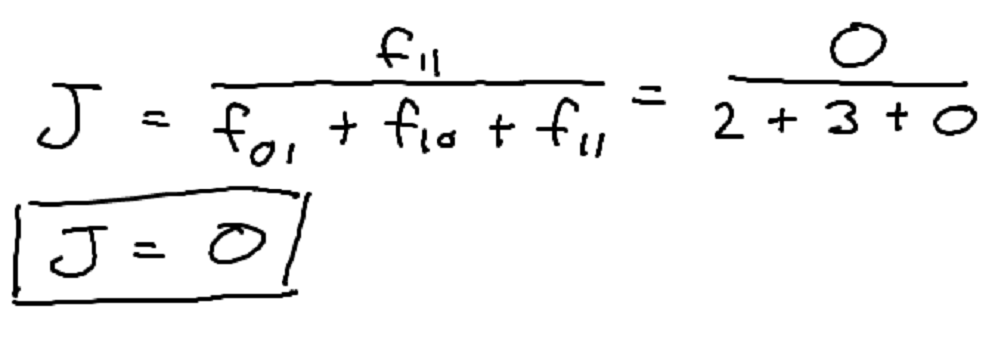 J = f₁₁ / (f₀₁ + f₁₀ + f₁₁) = 0 / (2 + 3 + 0)
J = 0